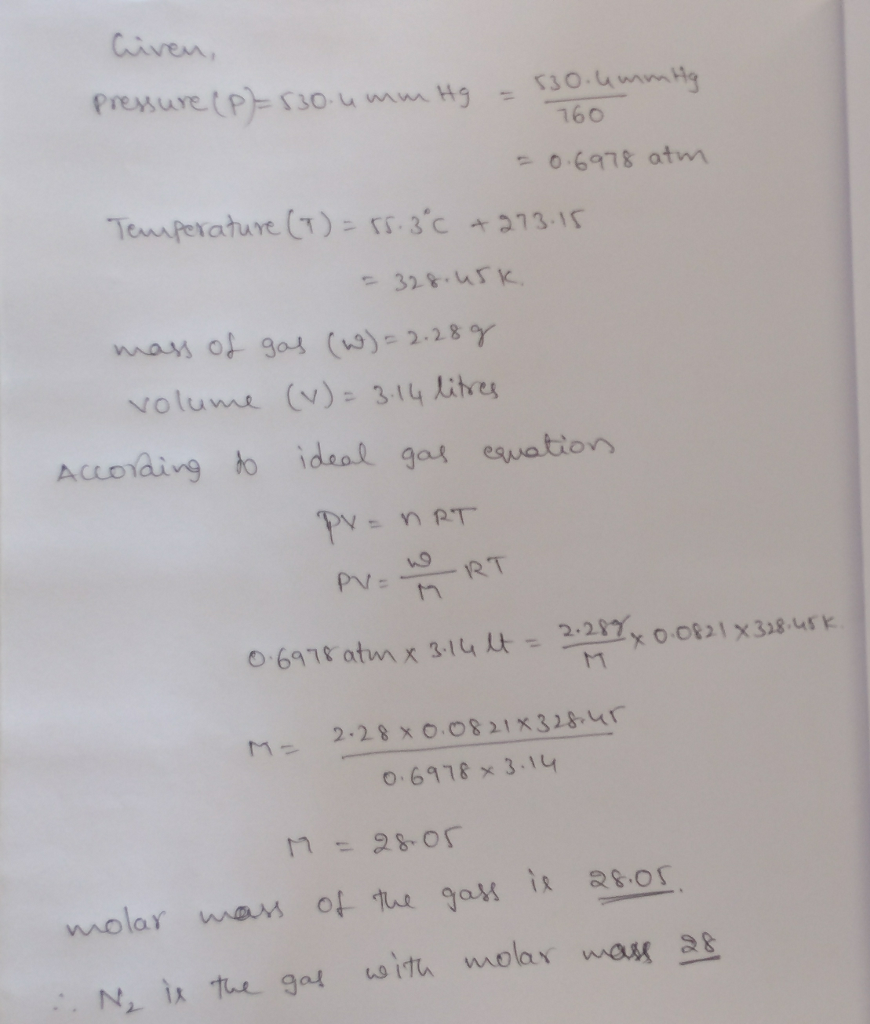 Given,
Pressure (P) = 530.4 mm Hg = 530.4 mmHg / 760
= 0.6978 atm
Temperature (T) = 55.3°C + 273.15
= 328.45 K.
mass of gas (w) = 2.28 g
volume (v) = 3.14 litres
According to ideal gas equation
PV = n RT
PV = w/M RT
0.6978 atm x 3.14 lt = 2.28g/M x 0.0821 x 328.45 K.
M = 2.28 x 0.0821 x 328.45 / 0.6978 x 3.14
M = 28.05
molar mass of the gass is 28.05.
∴ N₂ is the gas with molar mass 28